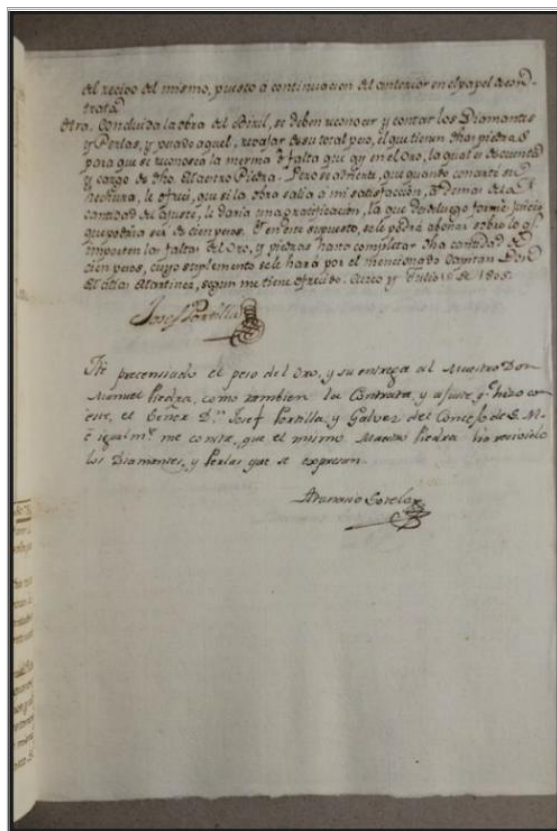 del recivo del mismo, puesto á continuacion del anterior en el papel de con-
trata.
Otra. Concluida la obra del Biril, se deben reconocer y contar los Diamantes
y Perlas, y pesado aquel, rebajar de su total peso, el que tienen dhas piedras
para que se reconosca la merma ó falta que ay en el Oro, la qual es de cuenta
y cargo de dho. Maestro Piedra. Pero se advierte, que quando contraté su
hechura, le ofreci, que si la obra salia á mi satisfacción, á demas de la
cantidad del ajuste, le daria una gratificacion, la que desde luego formé juicio
que podria ser de cien pesos. en este supuesto, se le podrá abonar sobre lo q.
importen las faltas del Oro, y piedras hasta completar dha cantidad de
cien pesos, cuyo suplemento se le hará por el mencionado Capitan Don
Matias Martinez, segun me tiene ofrecido. y Julio de 1805.
Josef Portilla
He precenciado el peso del Oro, y su entrega al Maestro Don
Manuel Piedra, como tambien la Contrata, y ajuste q.e hizo con
este, el Señor D.n Josef Portilla, y Galvez del Concejo de S. M.
é igualm.te me consta, que el mismo Maestro Piedra ha recivido
los Diamantes, y Perlas que se expresan.